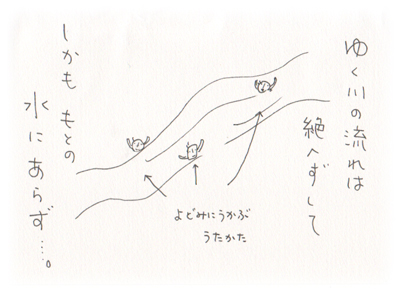 ゆく川の流れは
絶へずして
しかも もとの
水にあらず…。
よどみにうかぶ
うたかた